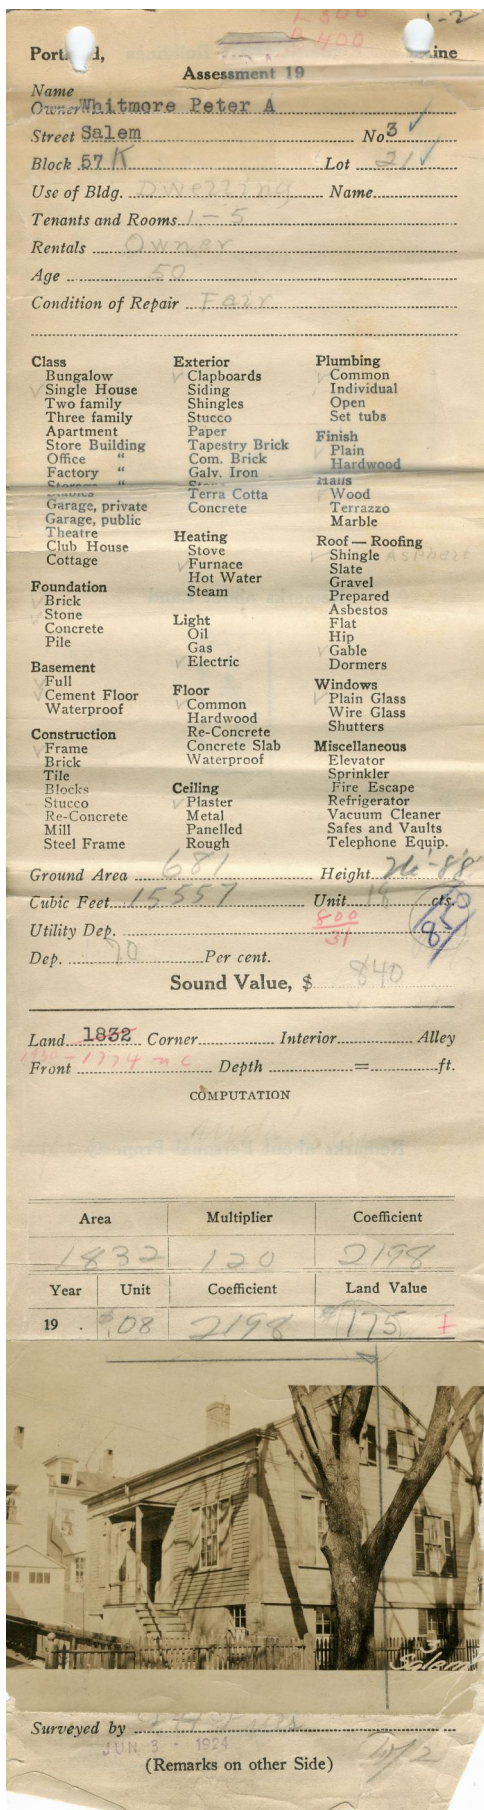 L 300
B 400
1-2
Portland, Maine
Assessment 19
Name
Owner Whitmore Peter A
Street Salem No. 3
Block 57 K Lot 21
Use of Bldg. Dwelling Name
Tenants and Rooms 1-5
Rentals Owner
Age 50
Condition of Repair Fair
Class
Bungalow
Single House
Two family
Three family
Apartment
Store Building
Office "
Factory "
Storage "
Stables
Garage, private
Garage, public
Theatre
Club House
Cottage
Foundation
Brick
Stone
Concrete
Pile
Basement
Full
Cement Floor
Waterproof
Construction
Frame
Brick
Tile
Blocks
Stucco
Re-Concrete
Mill
Steel Frame
Exterior
Clapboards
Siding
Shingles
Stucco
Paper
Tapestry Brick
Com. Brick
Galv. Iron
Stone
Terra Cotta
Concrete
Heating
Stove
Furnace
Hot Water
Steam
Light
Oil
Gas
Electric
Floor
Common
Hardwood
Re-Concrete
Concrete Slab
Waterproof
Ceiling
Plaster
Metal
Panelled
Rough
Plumbing
Common
Individual
Open
Set tubs
Finish
Plain
Hardwood
Halls
Wood
Terrazzo
Marble
Roof — Roofing
Shingle Asphalt
Slate
Gravel
Prepared
Asbestos
Flat
Hip
Gable
Dormers
Windows
Plain Glass
Wire Glass
Shutters
Miscellaneous
Elevator
Sprinkler
Fire Escape
Refrigerator
Vacuum Cleaner
Safes and Vaults
Telephone Equip.
Ground Area 681 Height
Cubic Feet 15557 Unit 18 cts.
850
Utility Dep. 800
31
Dep. 70 Per cent.
Sound Value, $ 840
Land 1832 Corner Interior Alley
1930-1774 n.c.
Front Depth = ft.
COMPUTATION
Area Multiplier Coefficient
1832 120 2198
Year Unit Coefficient Land Value
19 . $.08 2198 $175
3
Salem
Surveyed by
JUN 3 - 1924
(Remarks on other Side)